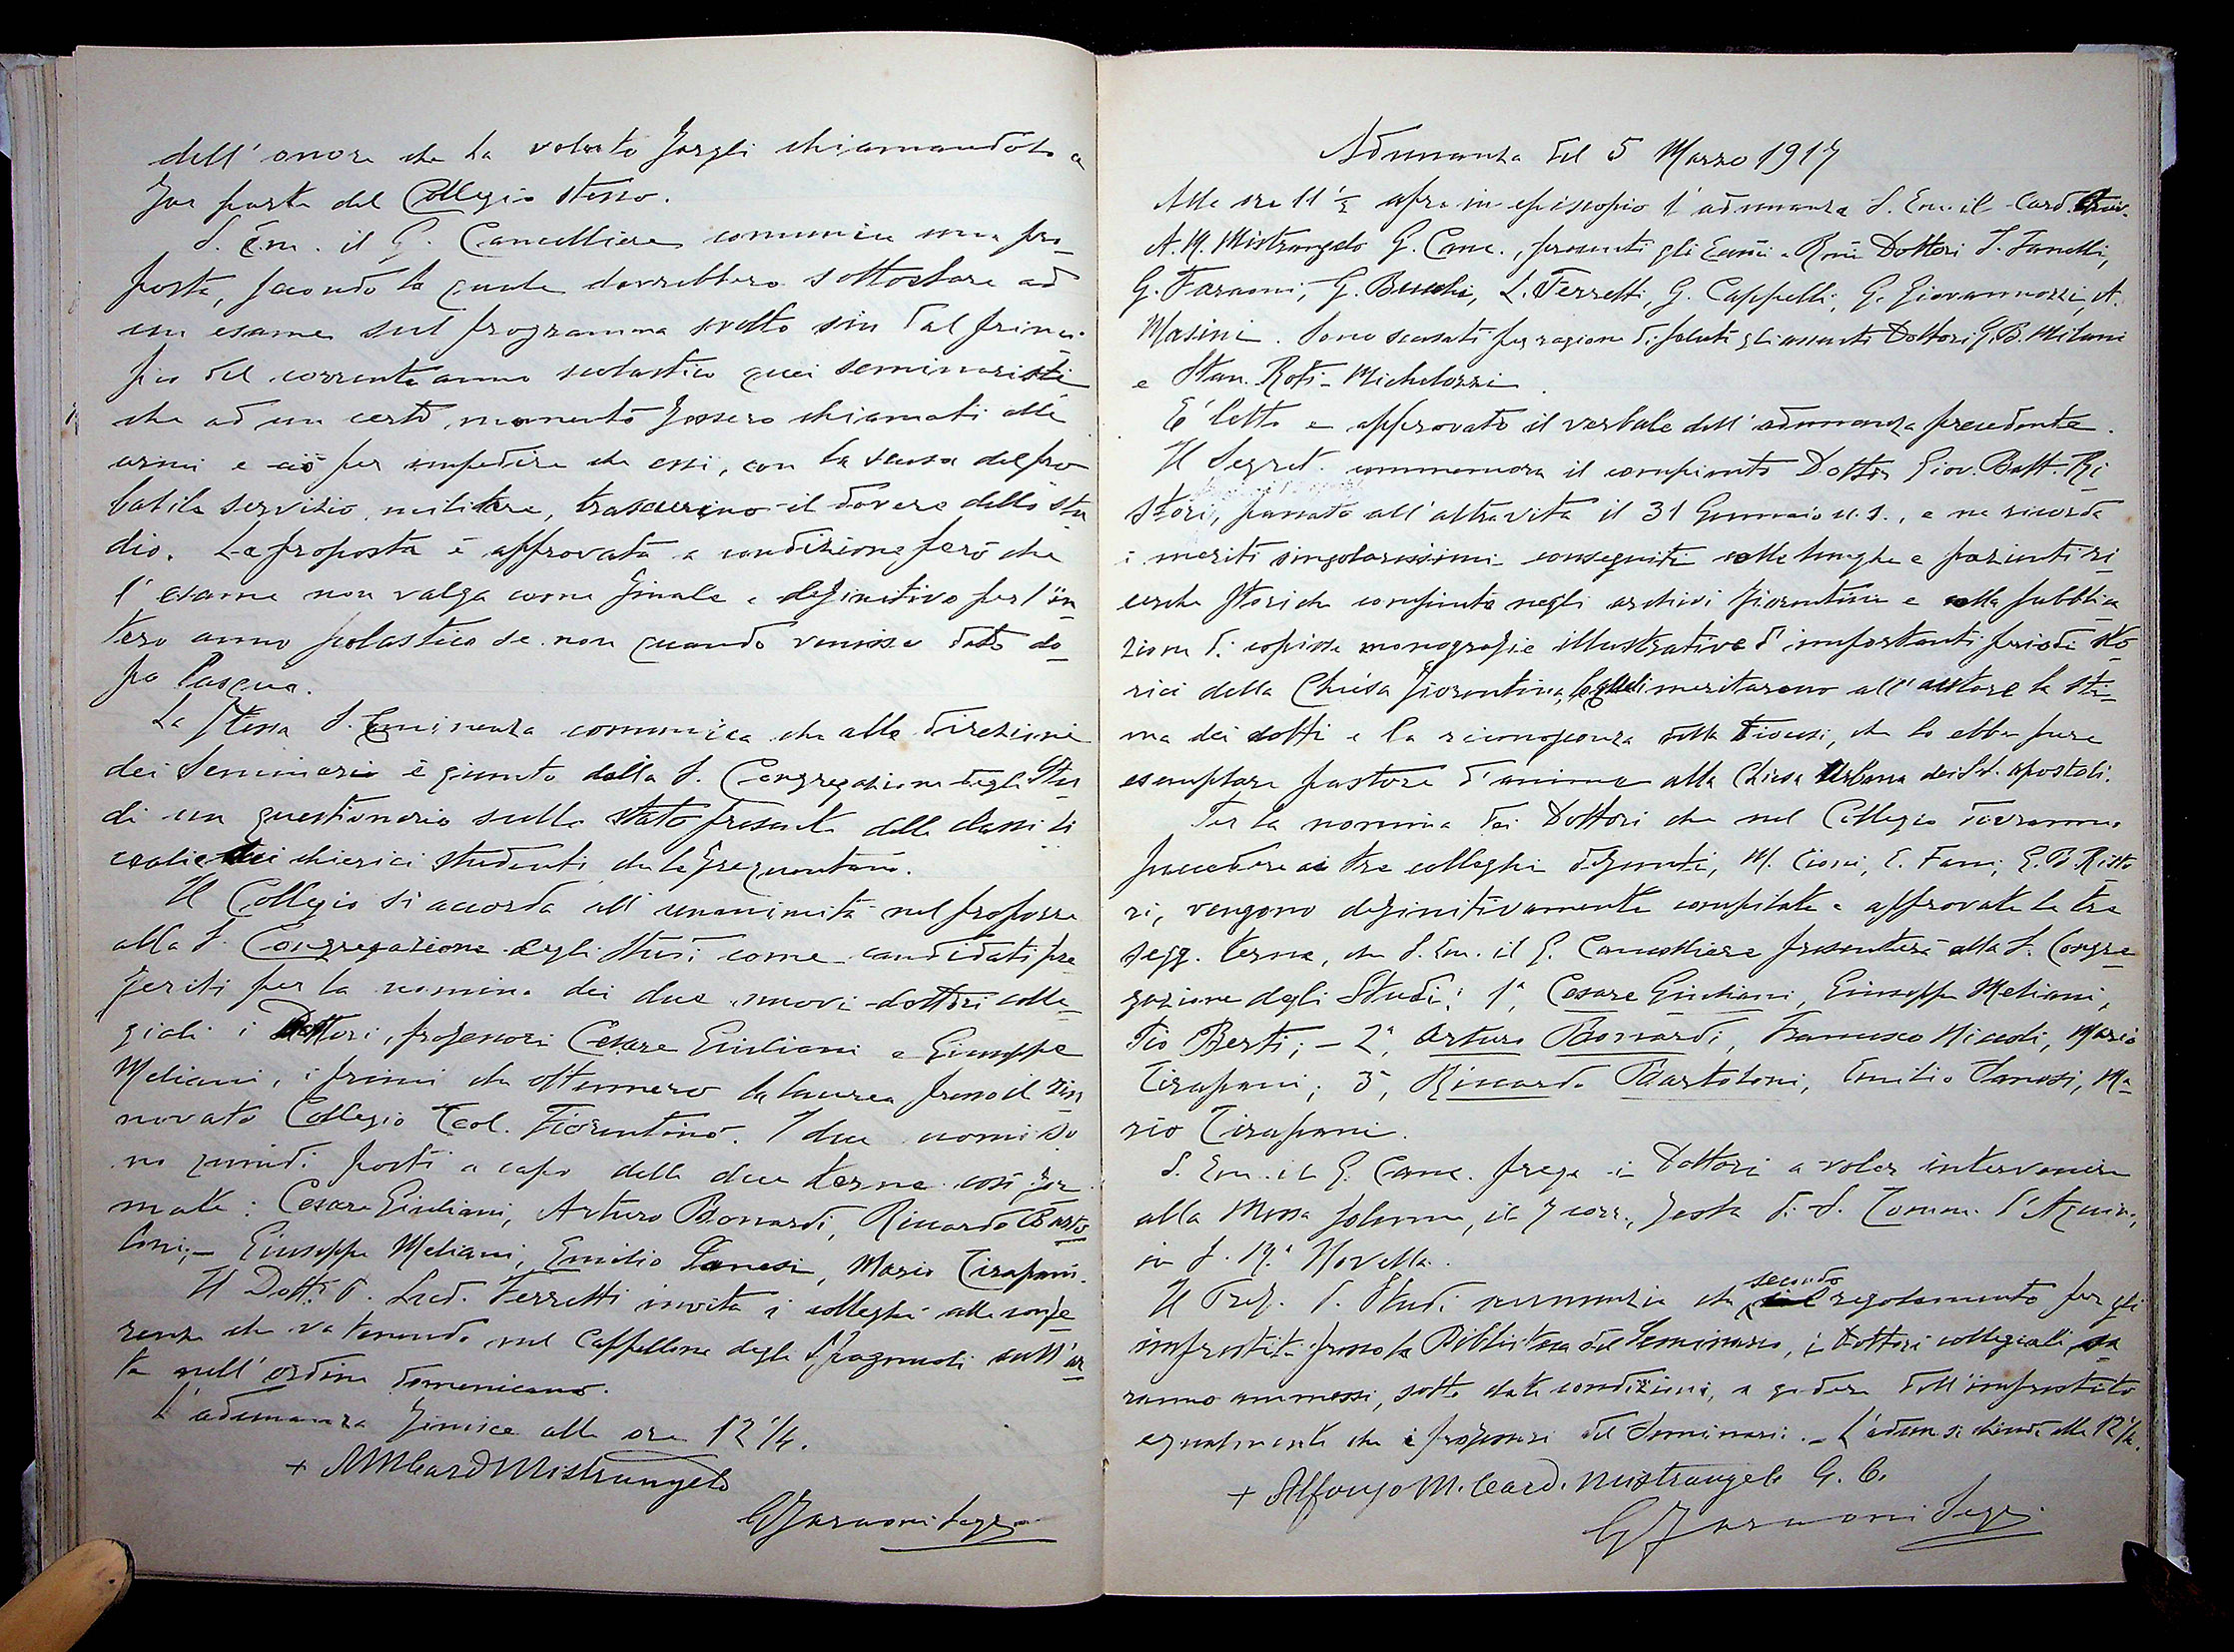 dell'onore che ha voluto fargli chiamandolo a
far parte del Collegio stesso.
S. Em. il G. Cancelliere comunica una pro-
posta, secondo la quale dovrebbero sottostare ad
un esame sul programma svolto sin dal princi-
pio del corrente anno scolastico quei seminaristi
che ad un certo momento fossero chiamati alle
armi e ciò per impedire che essi, con la scusa del pro
babile servizio militare, trascurino il dovere dello stu
dio. La proposta è approvata a condizione però che
l'esame non valga come finale e definitivo per l'in
tero anno scolastico se non quando venisse dato do-
po Pasqua.
La stessa S. Eminenza comunica che alla direzione
dei Seminario è giunto dalla S. Congregazione degli Stu
di un questionario sullo stato presente delle classi li
ceali e dei chierici studenti che le frequentano.
Il Collegio si accorda all'unanimità nel proporre
alla S. Congregazione degli Studi come candidati pre
feriti per la nomina dei due nuovi dottori colle-
giali i Dottori, professori Cesare Giuliani e Giuseppe
Meliani, i primi che ottennero la laurea presso il rin
novato Collegio Teol. Fiorentino. I due nomi so
no quindi posti a capo delle due terne così for
mate: Cesare Giuliani, Arturo Bonardi, Riccardo Barto
loni; - Giuseppe Meliani, Emilio Sanesi, Mario Tirapani.
Il Dott. P. Lod. Ferretti invita i colleghi alle confe
renze che va tenendo nel Cappellone degli Spagnuoli sull'ar
te nell'ordine domenicano.
L'adunanza finisce alle ore 12 1/4.
+ AM Card Mistrangelo
G Faraoni Segr.
Adunanza del 5 Marzo 1917
Alle ore 11 1/2 apre in episcopio l'adunanza S. Em. il Card. Arciv.
A. M. Mistrangelo G. Canc., presenti gli Ecc.mi e Rev.mi Dottori S. Fanelli,
G. Faraoni, G. Bucchi, L. Ferretti, G. Cappelli, G. Giovannozzi, A.
Masini. Sono scusati per ragione di salute gli assenti Dottori G. B. Milani
e Stan. Roti-Michelozzi.
E' letto e approvato il verbale dell'adunanza precedente.
Il Segret. commemora il compianto Dottor Giov. Batt. Ri
stori, passato all'altra vita il 31 Gennaio u. s., e ne ricorda
i meriti singolarissimi conseguiti colle lunghe e pazienti ri
cerche storiche compiute negli archivi fiorentini e colla pubblica
zione di copiose monografie illustrative d'importanti periodi sto
rici della Chiesa fiorentina, le quali meritarono all'autore la sti-
ma dei dotti e la riconoscenza della Diocesi, che lo ebbe pure
esemplare pastore d'anime alla Chiesa Urbana dei SS. apostoli.
Per la nomina dei Dottori che nel Collegio dovranno
succedere ai tre colleghi defunti, M. Cioni, E. Fani, G. B. Risto
ri, vengono definitivamente compilate e approvate le tre
segg. terne, che S. Em. il G. Cancelliere presenterà alla S. Congre
gazione degli Studi: 1ª, Cesare Giuliani, Giuseppe Meliani,
Pio Berti; - 2ª, Arturo Bonardi, Francesco Niccoli, Mario
Tirapani; 3ª, Riccardo Bartoloni, Emilio Sanesi, Ma-
rio Tirapani.
S. Em. il G. Canc. prega i Dottori a voler intervenire
alla Messa solenne, il 7 corr., festa di S. Tomm. d'Aquino,
in S. Mª. Novella.
Il Pref. d. Studi annunzia che secondo il regolamento per gli
imprestiti presso la Biblioteca del Seminario, i Dottori collegiali sa
ranno ammessi, sotto date condizioni, a godere dell'imprestito
egualmente che i professori del Seminario. - L'adun. si chiude alle 12 1/2.
+ Alfonso M. Card. Mistrangelo G. C.
G Faraoni Segr.